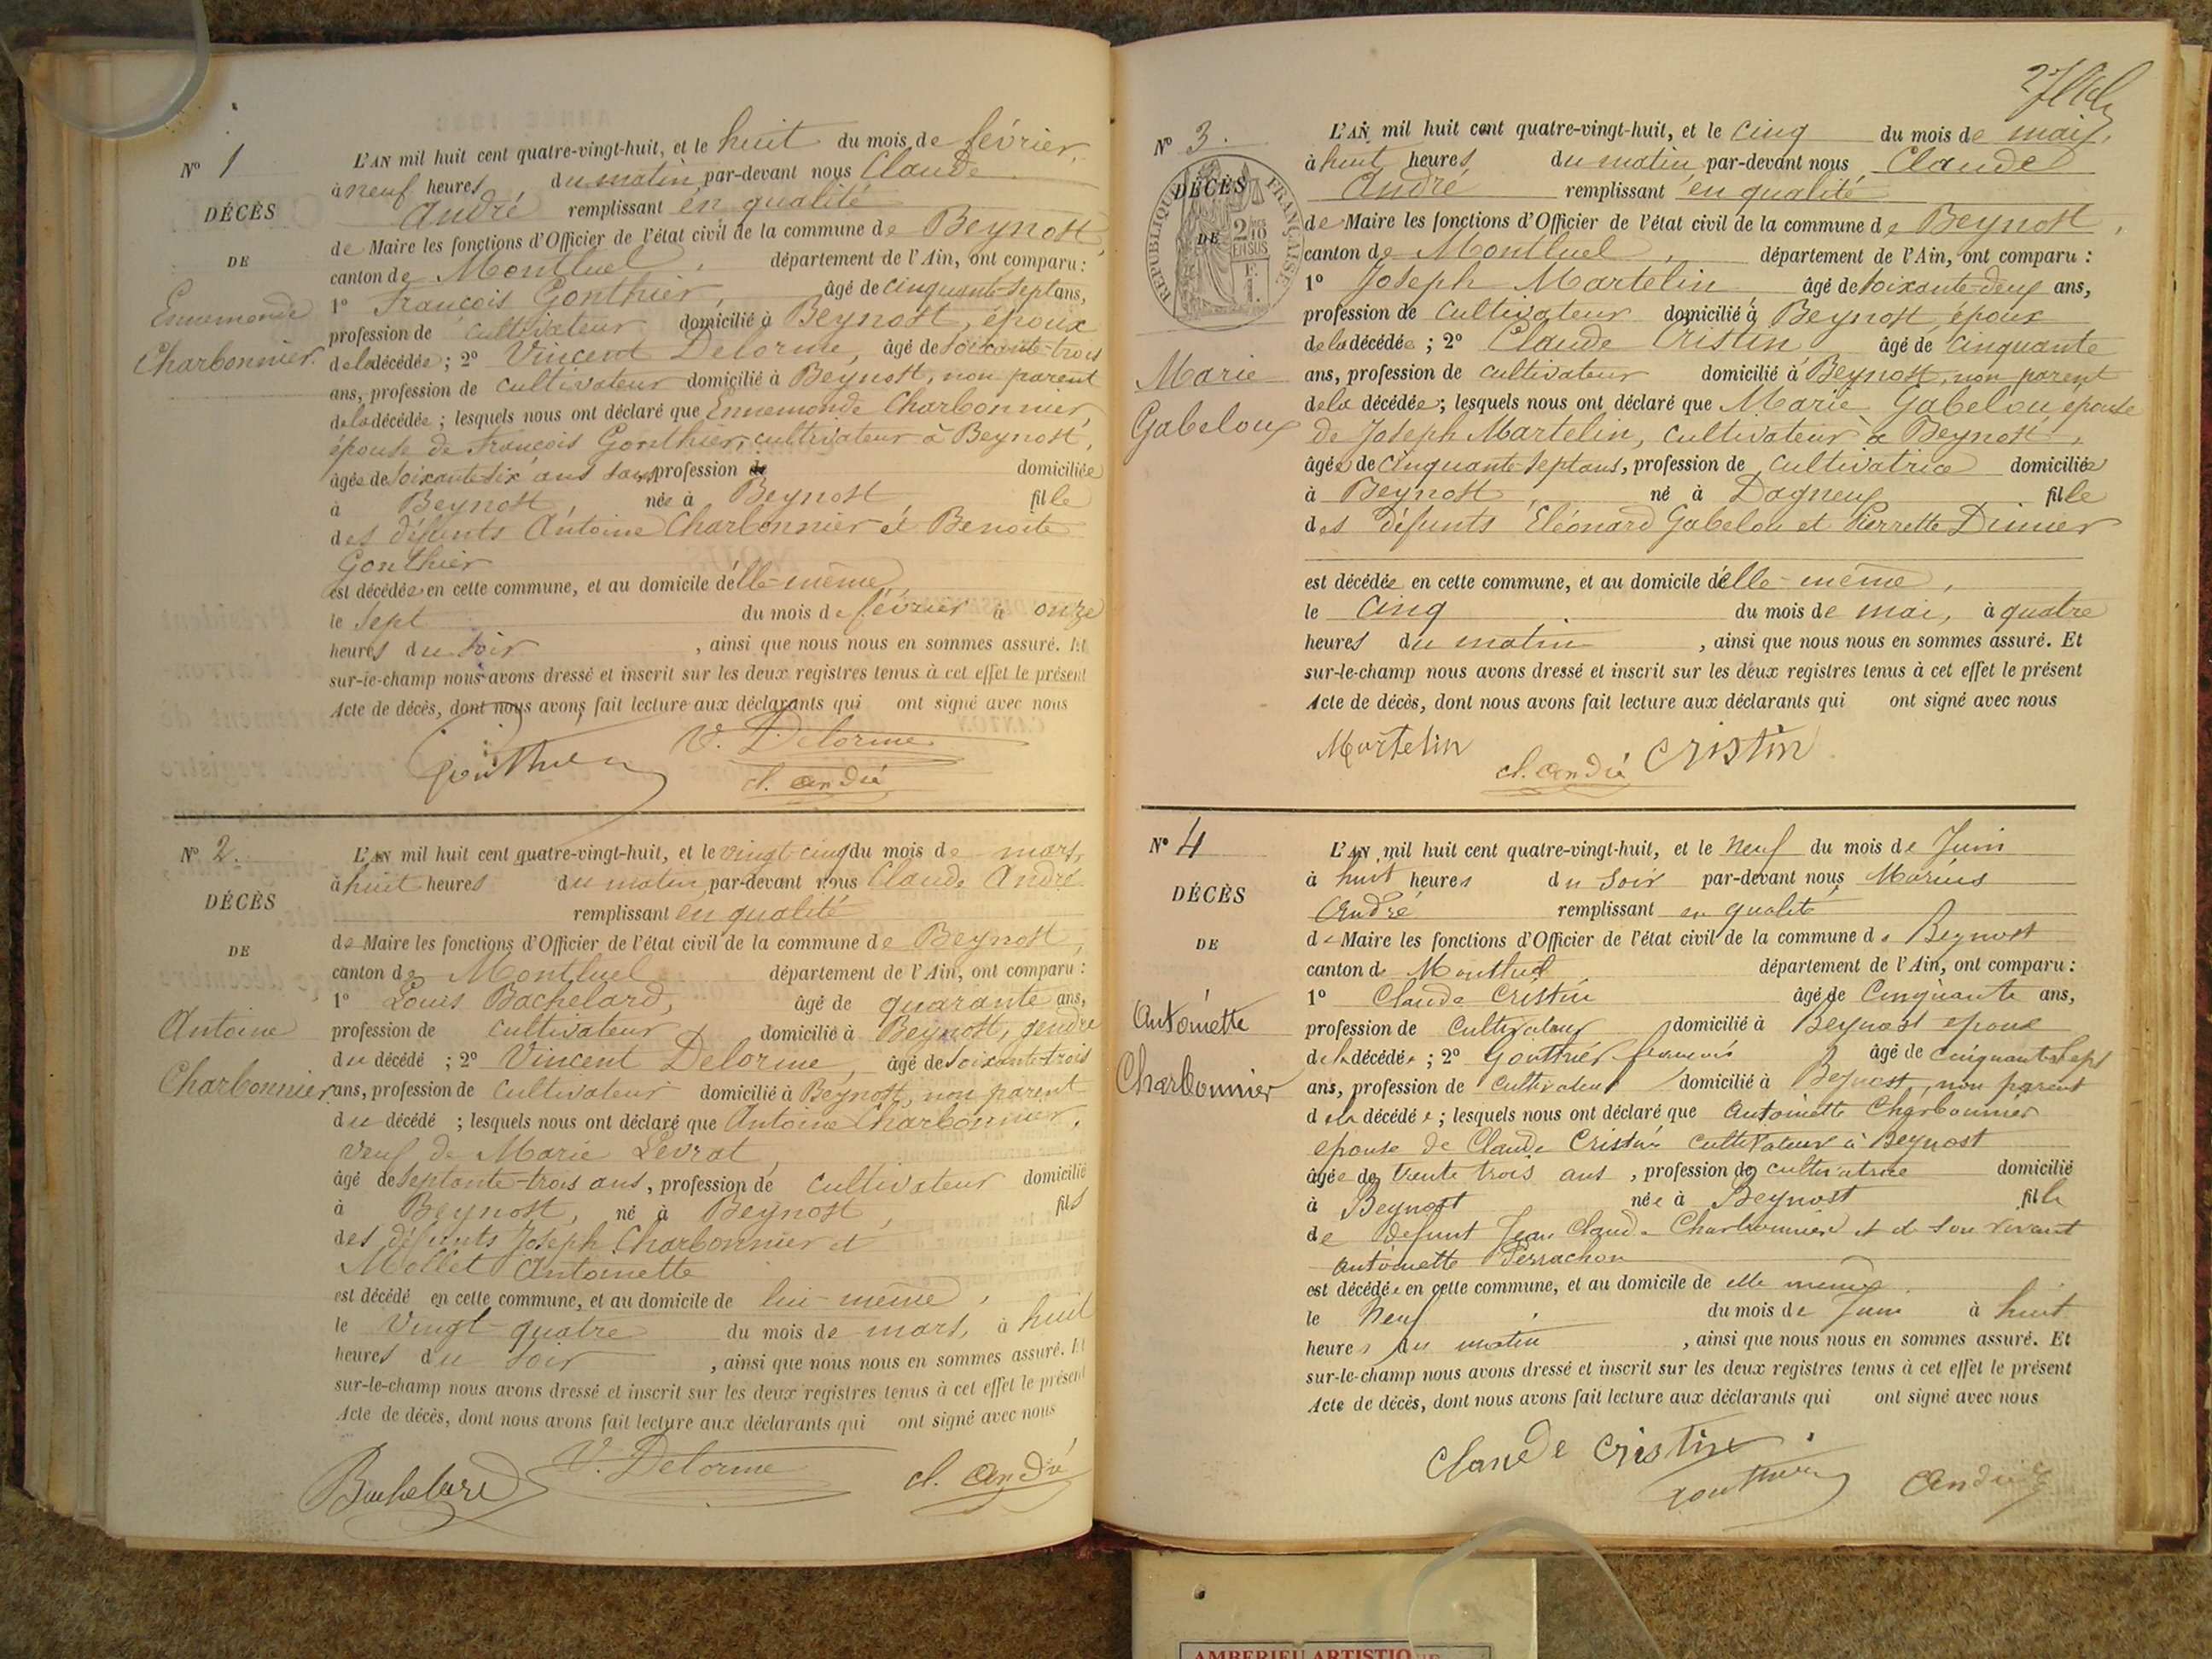 Nº 1
DÉCÈS
DE
Ennemonde
Charbonnier
L'AN mil huit cent quatre-vingt-huit, et le huit du mois de février,
à neuf heures du matin par-devant nous Claude
André remplissant en qualité
de Maire les fonctions d'Officier de l'état civil de la commune de Beynost,
canton de Montluel, département de l'Ain, ont comparu :
1º François Gonthier, âgé de cinquante-sept ans,
profession de cultivateur domicilié à Beynost, époux
de la décédée ; 2º Vincent Delorme, âgé de soixante-trois
ans, profession de cultivateur domicilié à Beynost, non parent
de la décédée ; lesquels nous ont déclaré que Ennemonde Charbonnier,
épouse de François Gonthier, cultivateur à Beynost,
âgée de soixante six ans sans profession de domiciliée
à Beynost, née à Beynost, fille
des défunts Antoine Charbonnier et Benoite
Gonthier
est décédée en cette commune, et au domicile d'elle-même,
le sept du mois de février à onze
heures du soir, ainsi que nous nous en sommes assuré. Et
sur-le-champ nous avons dressé et inscrit sur les deux registres tenus à cet effet le présent
Acte de décès, dont nous avons fait lecture aux déclarants qui ont signé avec nous
Gonthier V. Delorme
cl. andré
Nº 2.
DÉCÈS
DE
Antoine
Charbonnier
L'AN mil huit cent quatre-vingt-huit, et le vingt cinq du mois de mars,
à huit heures du matin, par-devant nous Claude André
remplissant en qualité
de Maire les fonctions d'Officier de l'état civil de la commune de Beynost,
canton de Montluel département de l'Ain, ont comparu :
1º Louis Bachelard, âgé de quarante ans,
profession de cultivateur domicilié à Beynost, gendre
du décédé ; 2º Vincent Delorme, âgé de soixante-trois
ans, profession de cultivateur domicilié à Beynost, non parent
du décédé ; lesquels nous ont déclaré que Antoine Charbonnier,
veuf de Marie Levrat,
âgé de septante-trois ans, profession de cultivateur domicilié
à Beynost, né à Beynost, fils
des défunts Joseph Charbonnier et
Mollet Antoinette
est décédé en cette commune, et au domicile de lui-même,
le vingt-quatre du mois de mars, à huit
heures du soir, ainsi que nous nous en sommes assuré. Et
sur-le-champ nous avons dressé et inscrit sur les deux registres tenus à cet effet le présent
Acte de décès, dont nous avons fait lecture aux déclarants qui ont signé avec nous
Bachelard V. Delorme cl. andré
Nº 3.
DÉCÈS
DE
RÉPUBLIQUE FRANÇAISE
2/10 EN SUS
Marie
Gabeloux
L'AN mil huit cent quatre-vingt-huit, et le cinq du mois de mai,
à huit heures du matin par-devant nous Claude
André remplissant en qualité
de Maire les fonctions d'Officier de l'état civil de la commune de Beynost,
canton de Montluel, département de l'Ain, ont comparu :
1º Joseph Martelin âgé de soixante-deux ans,
profession de cultivateur domicilié à Beynost, époux
de la décédée ; 2º Claude Cristin âgé de cinquante
ans, profession de cultivateur domicilié à Beynost, non parent
de la décédée ; lesquels nous ont déclaré que Marie Gabelou, épouse
de Joseph Martelin, cultivateur à Beynost,
âgée de cinquante-sept ans, profession de cultivatrice domiciliée
à Beynost, né à Dagneux fille
des défunts Éléonard Gabelou et Pierrette Dimier
est décédée en cette commune, et au domicile d'elle-même,
le cinq du mois de mai, à quatre
heures du matin, ainsi que nous nous en sommes assuré. Et
sur-le-champ nous avons dressé et inscrit sur les deux registres tenus à cet effet le présent
Acte de décès, dont nous avons fait lecture aux déclarants qui ont signé avec nous
Martelin cl. andré Cristin
Nº 4
DÉCÈS
DE
Antoinette
Charbonnier
L'AN mil huit cent quatre-vingt-huit, et le neuf du mois de Juin
à huit heures du soir par-devant nous Marius
André remplissant en qualité
de Maire les fonctions d'Officier de l'état civil de la commune de Beynost
canton de Montluel département de l'Ain, ont comparu :
1º Claude Cristin âgé de Cinquante ans,
profession de Cultivateur domicilié à Beynost epoux
de la décédée ; 2º Gonthier françois âgé de cinquante sept
ans, profession de cultivateur domicilié à Beynost, non parent
de la décédée ; lesquels nous ont déclaré que Antoinette Charbonnier
epouse de Claude Cristin cultivateur à Beynost
âgée de trente trois ans, profession de cultivatrice domicilié
à Beynost née à Beynost fille
de defunt Jean Claude Charbonnier et de son vivant
Antoinette Perrachon
est décédée en cette commune, et au domicile de elle meme
le neuf du mois de Juin à huit
heures du matin, ainsi que nous nous en sommes assuré. Et
sur-le-champ nous avons dressé et inscrit sur les deux registres tenus à cet effet le présent
Acte de décès, dont nous avons fait lecture aux déclarants qui ont signé avec nous
Claude Cristin
Gonthier André
AMBERIEU ARTISTIQUE